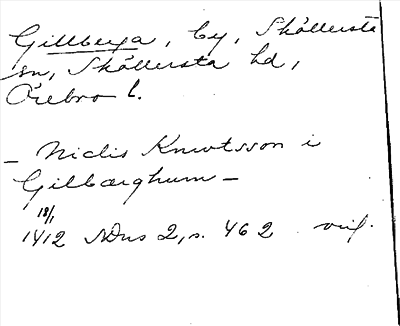 Gillberga, by, Sköllersta
sn, Sköllersta hd,
Örebro l.
– Niclis Knwtsson i
Gilbærghum –
18/1
1412 NDns 2, s. 462